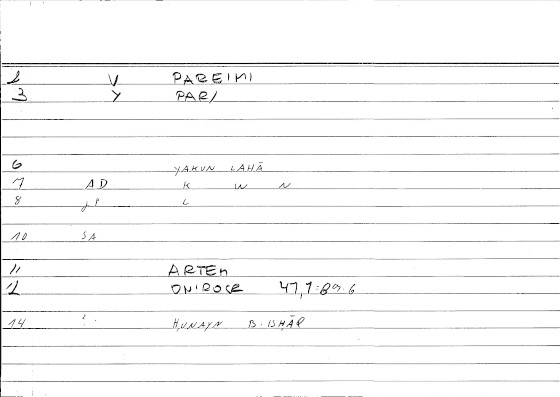 2 V PAREINI
3 Y PAR/
6 YAKUN LAHĀ
7 AD K W N
8 L
10 SA
11 ARTEM
12 ONIROCR 47,1-89.6
14 ḤUNAYN B. ISḤĀQ